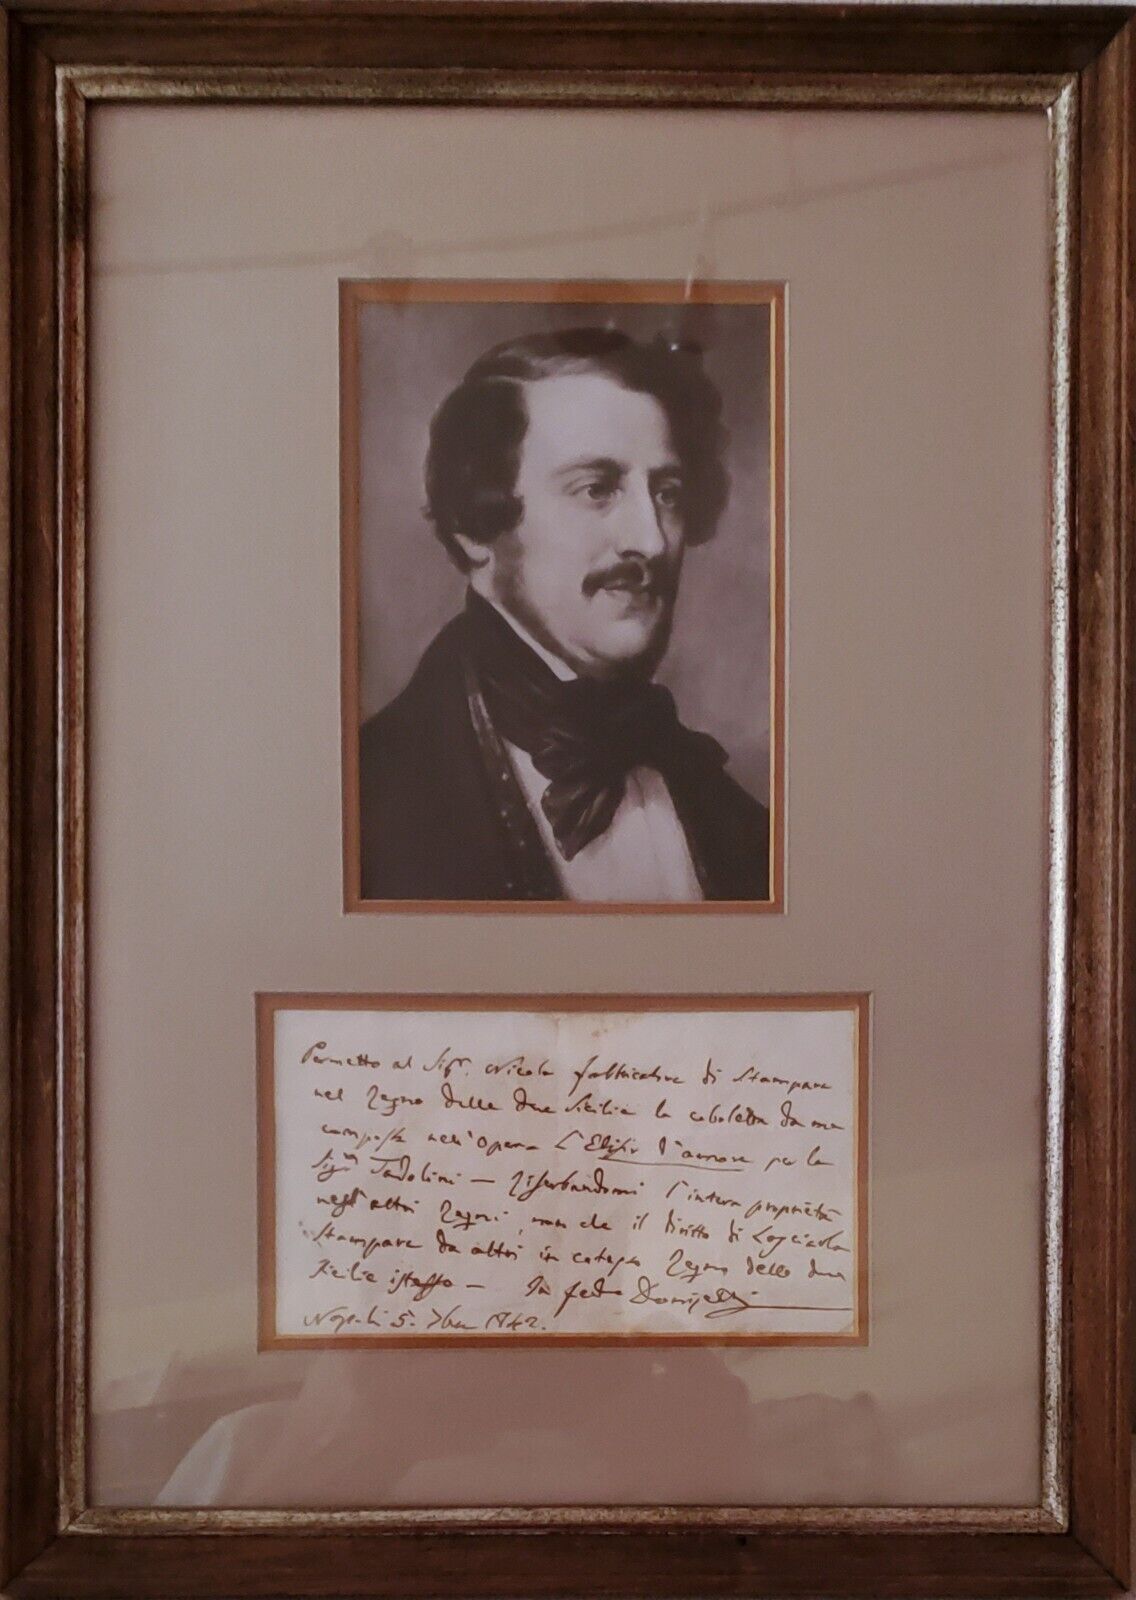 Permetto al Sigr. Nicola fabbricatore di Stampare
nel Regno delle due Sicilie la cabaletta da me
composta nell'Opera L'Elisir d'amore per la
Sigra Tadolini — Riserbandomi l'intera proprietà
negl'altri Regni, non che il diritto di
Stampare da altri in cotesto Regno delle due
Sicilie istesso — In fede Donizetti
Napoli 5. 7bre 1842.